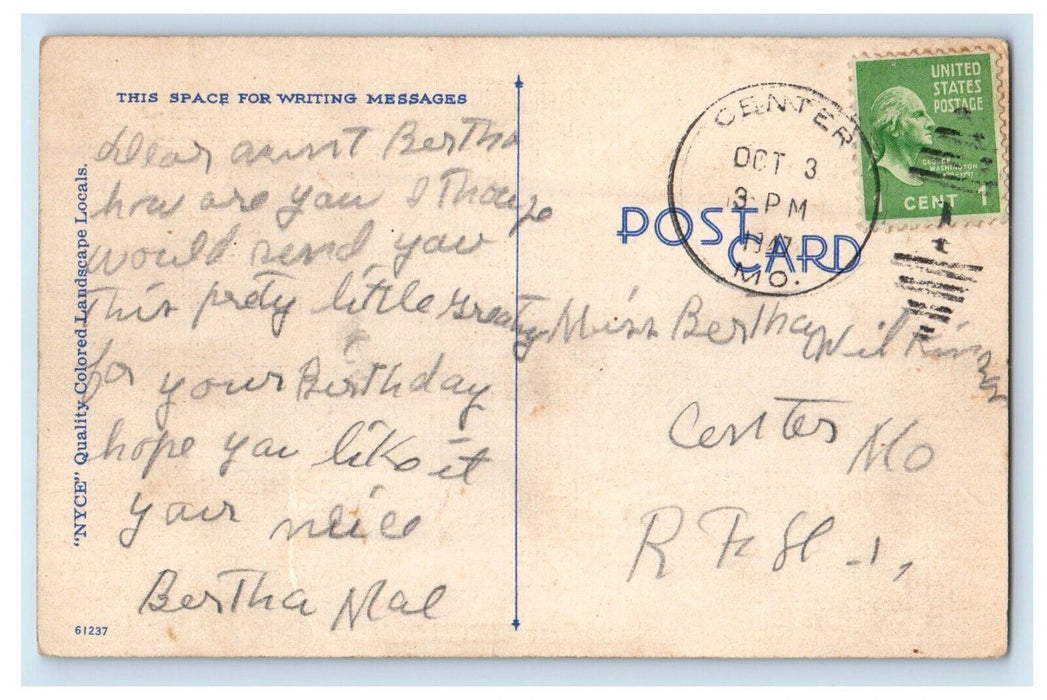 THIS SPACE FOR WRITING MESSAGES
Dear aunt Bertha
how are you I
would send you
This prety little
for your Birthday
hope you like it
your neice
Bertha Mae
"NYCE" Quality Colored Landscape Locals.
61237
POST
CARD
CENTER
OCT 3
3 PM
1947
MO.
UNITED
STATES
POSTAGE
GEORGE
WASHINGTON
CENT 1
Miss Bertha Wilkins
Center Mo
R F